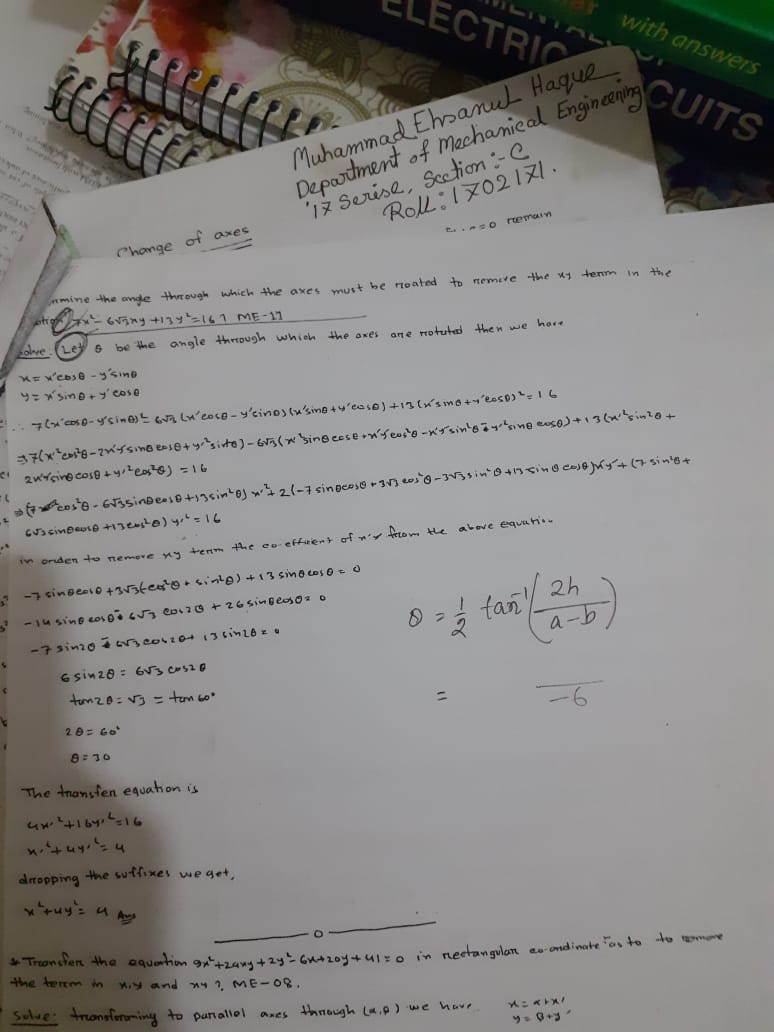 with answers
ELECTRIC CUITS
Muhammad Ehsanul Haque
Department of Mechanical Engineering
'17 Serise, Section :- C
Roll: 1702171.
Change of axes
=0 remain
mine the angle through which the axes must be roated to remove the xy term in the
7x²- 6√3xy +13y²=16? ME-17
solve. Let θ be the angle through which the axes are rotated then we have
x= x'cosθ - y'sinθ
y= x'sinθ + y'cosθ
∴ 7(x'cosθ- y'sinθ)²- 6√3 (x'cosθ - y'sinθ)(x'sinθ+y'cosθ)+13(x'sinθ+y'cosθ)²=16
⇒7(x'²cos²θ-2x'y'sinθcosθ+y'²sin²θ)-6√3(x'²sinθcosθ+x'y'cos²θ-x'y'sin²θ-y'²sinθcosθ)+13(x'²sin²θ+
2x'y'sinθcosθ+y'²cos²θ) =16
⇒(7cos²θ-6√3sinθcosθ+13sin²θ)x'²+2(-7sinθcosθ+3√3cos²θ-3√3sin²θ+13sinθcosθ)x'y'+(7sin²θ+
6√3sinθcosθ+13cos²θ)y'²=16
in order to remove xy term the co-efficient of x'y' from the above equation
-7sinθcosθ+3√3(cos²θ+sin²θ)+13sinθcosθ=0
-14sinθcosθ-6√3cos2θ+26sinθcosθ=0
-7sin2θ-6√3cos2θ+13sin2θ=0
6sin2θ= 6√3cos2θ
tan2θ=√3 = tan60°
2θ=60°
θ=30
θ = 1/2 tan⁻¹(2h/a-b)
= /-6
The transfer equation is
4x'²+16y'²=16
x'²+4y'²=4
dropping the suffixes we get,
x²+4y²=4 Ans
* Transfer the equation 9x²+24xy+2y²-6x+20y+41=0 in rectangular co-ordinate as to to remove
the term in x,y and xy?, ME-08.
Solve: transforming to parallel axes through (α,β) we have x=α+x'
y=β+y'